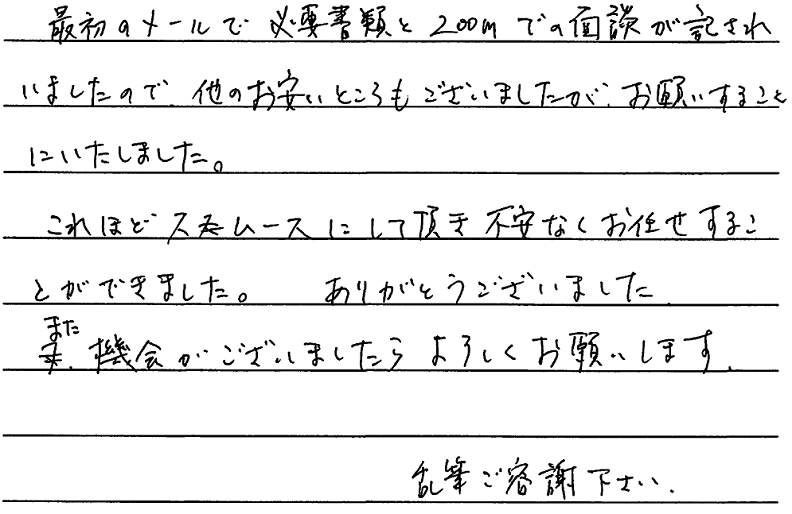 最初のメールで必要書類と ZOOMでの面談が記され
いましたので、他のお安いところもございましたが、お願いすること
にいたしました。
これほどスムースにして頂き不安なくお任せするこ
とができました。 ありがとうございました
また
又、機会がございましたらよろしくお願いします。
乱筆ご容謝下さい。